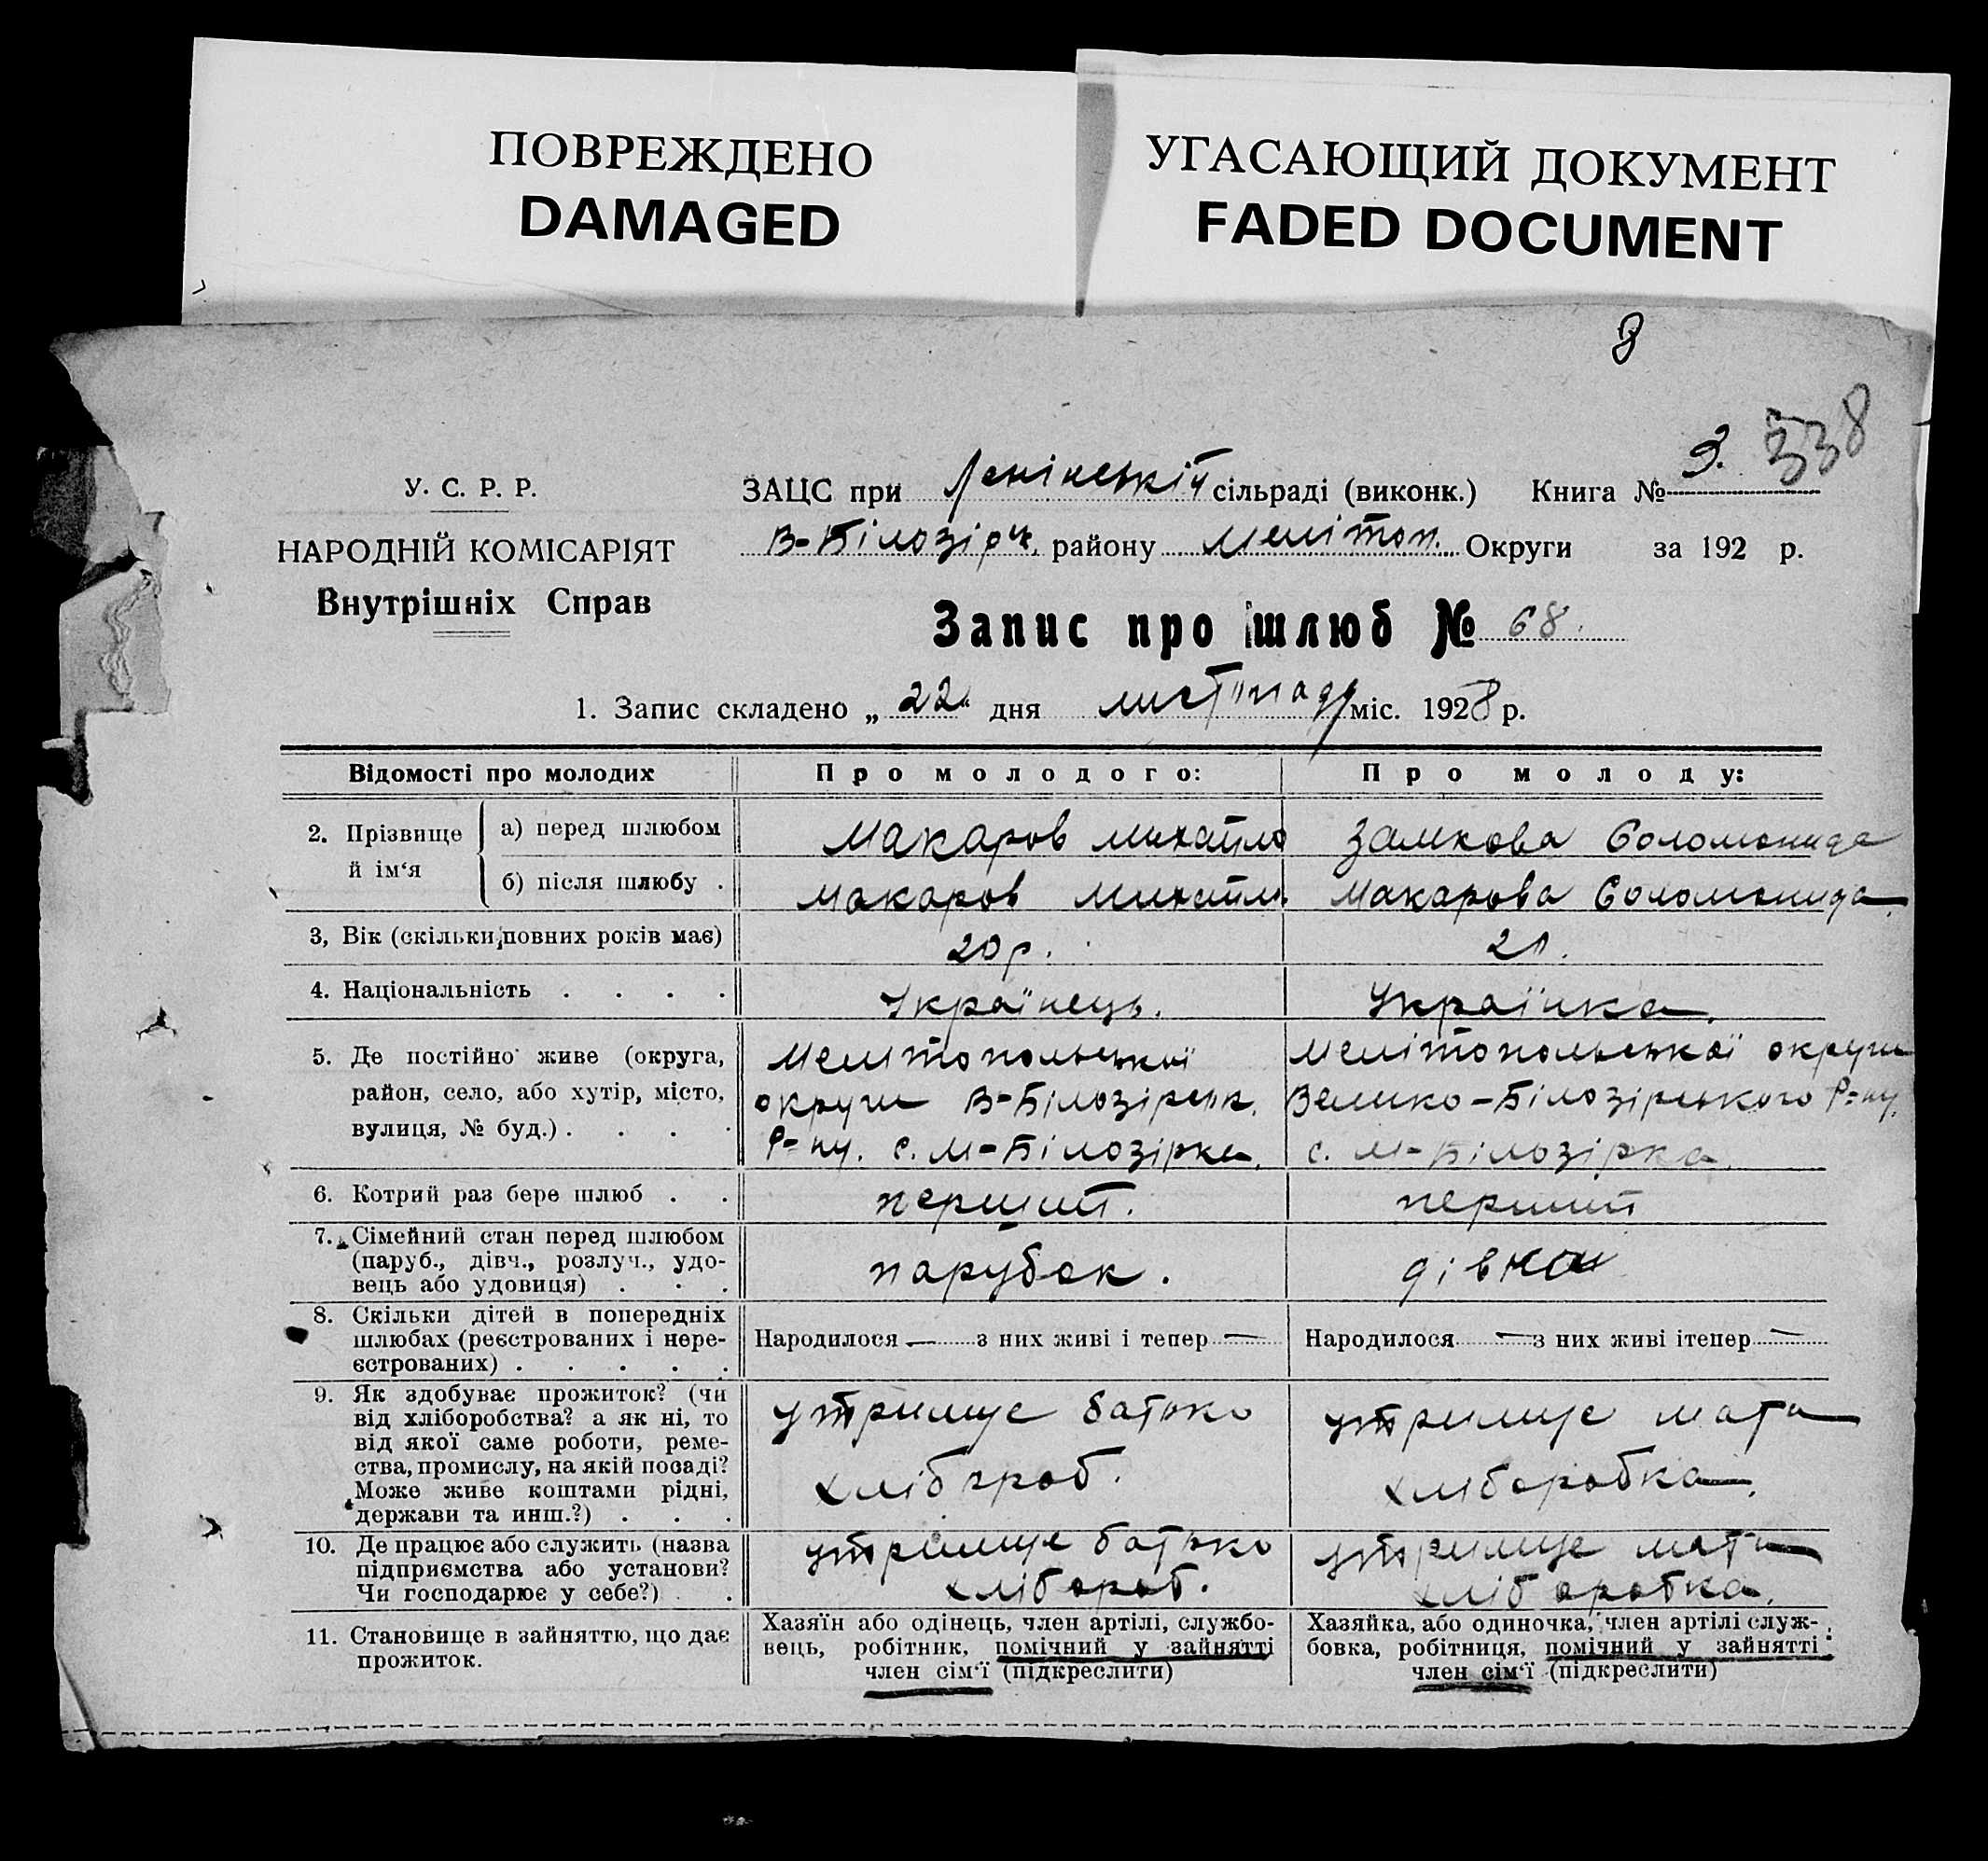 ПОВРЕЖДЕНО
DAMAGED
УГАСАЮЩИЙ ДОКУМЕНТ
FADED DOCUMENT
8
338
У. С. Р. Р.
НАРОДНІЙ КОМІСАРІЯТ
Внутрішніх Справ
ЗАЦС при Ленінській сільраді (виконк.) Книга № 3.
В-Білозірч. району Мелітоп. Округи за 192 р.
Запис про шлюб № 68.
1. Запис складено „ 22 " дня листопада міс. 1928 р.
Відомості про молодих
Про молодого:
Про молоду:
2. Прізвище й ім‘я
а) перед шлюбом
Макаров Михайло
Замкова Соломонида
б) після шлюбу .
Макаров Михайло
Макарова Соломонида.
3, Вік (скільки повних років має)
20 р.
21.
4. Національність . . . .
Українець.
Українка.
5. Де постійно живе (округа,
район, село, або хутір, місто,
вулиця, № буд.) . . . .
Мелітопольської
округи В-Білозірськ.
Р-ну. с. М-Білозірка.
Мелітопольської округи
Велико-Білозірського Р-ну.
с. М-Білозірка.
6. Котрий раз бере шлюб . .
перший.
перший
7. Сімейний стан перед шлюбом
(паруб., дівч., розлуч., удо-
вець або удовиця) . . .
парубок.
дівка
8. Скільки дітей в попередніх
шлюбах (реєстрованих і нере-
єстрованих) . . . . .
Народилося — з них живі і тепер —
Народилося — з них живі ітепер —
9. Як здобуває прожиток? (чи
від хліборобства? а як ні, то
від якої саме роботи, реме-
ства, промислу, на якій посаді?
Може живе коштами рідні,
держави та инш.?) . . .
утримує батько
хлібороб.
утримує мати
хліборобка.
10. Де працює або служить (назва
підприємства або установи?
Чи господарює у себе?) . .
утримує батько
хлібороб.
утримує мати
хліборобка.
11. Становище в зайняттю, що дає
прожиток.
Хазяїн або одінець, член артілі, службо-
вець, робітник, помічний у зайнятті
член сім‘ї (підкреслити)
Хазяйка, або одиночка, член артілі служ-
бовка, робітниця, помічний у зайнятті
член сім‘ї (підкреслити)